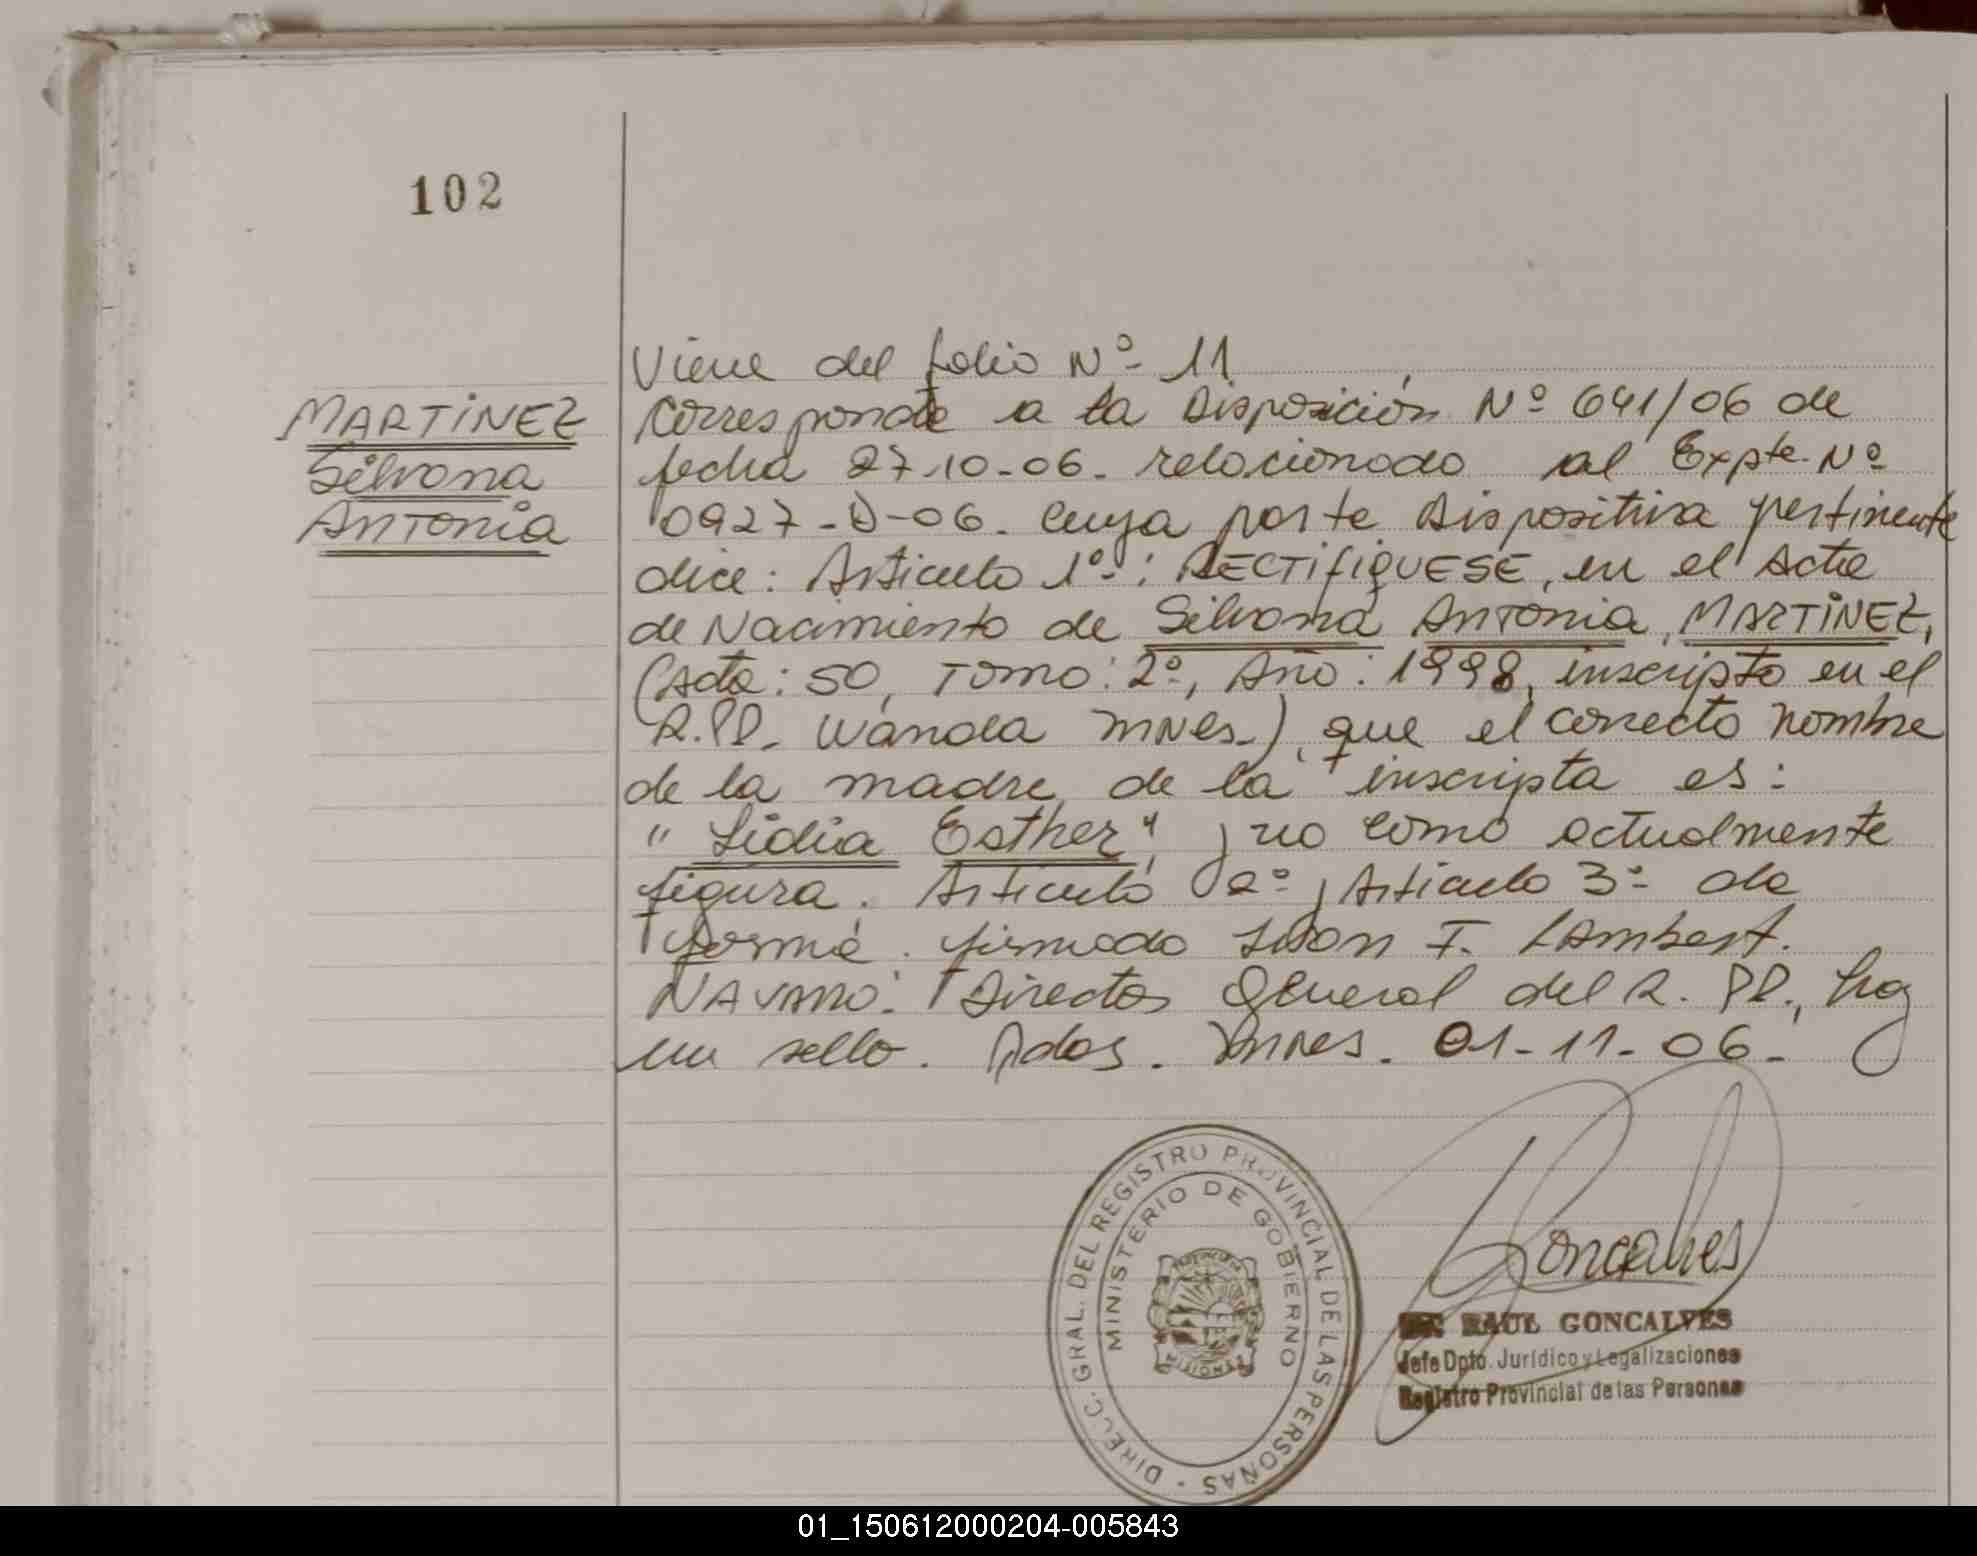 102
MARTINEZ
Silvana
Antonia
Viene del folio Nº 11
Corresponde a la Disposición Nº 641/06 de
fecha 27-10-06. relacionado al Expte. Nº
0927-D-06. cuya parte Dispositiva pertinente
dice: Articulo 1º: RECTIFIQUESE, en el Acta
de Nacimiento de Silvana Antonia MARTINEZ,
(Acta: 50, Tomo: 2º, Año: 1998, inscripto en el
R.PP. Wanda Mnes.), que el correcto nombre
de la madre de la inscripta es:
"Lidia Esther", y no como actualmente
figura. Articulo 2º y Articulo 3º de
forma. firmado Juan F. Lambert.
NAVARRO. Director General del R. PP., hay
un sello. Pdas. Mnes. 01-11-06.
DIRECC. GRAL. DEL REGISTRO PROVINCIAL DE LAS PERSONAS -
MINISTERIO DE GOBIERNO
PROVINCIA DE
MISIONES
Goncalves
RAUL GONCALVES
Jefe Dpto. Jurídico y Legalizaciones
Registro Provincial de las Personas
01_150612000204-005843